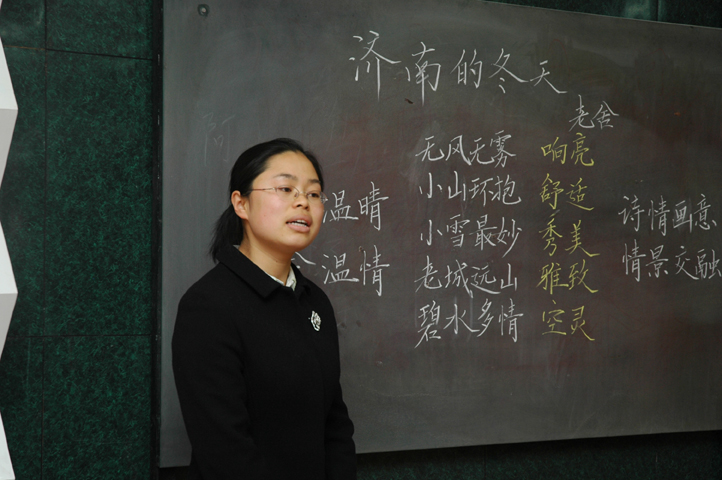 济南的冬天
老舍
无风无雾 响亮
温晴 小山环抱 舒适
小雪最妙 秀美 诗情画意
温情 老城远山 雅致 情景交融
碧水多情 空灵